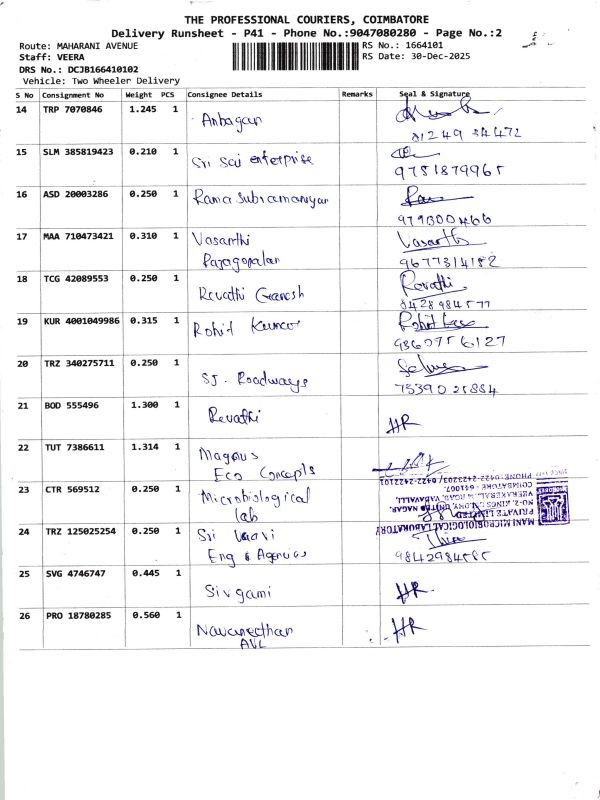 THE PROFESSIONAL COURIERS, COIMBATORE
Delivery Runsheet - P41 - Phone No.:9047080280 - Page No.:2
Route: MAHARANI AVENUE
RS No.: 1664101
Staff: VEERA
RS Date: 30-Dec-2025
DRS No.: DCJB166410102
Vehicle: Two Wheeler Delivery
S No Consignment No Weight PCS Consignee Details Remarks Seal & Signature
14 TRP 7070846 1.245 1 Anbagan
15 SLM 385819423 0.210 1 Sri Sai enterprise
9751879965
16 ASD 20003286 0.250 1 Rama Subramaniyan
17 MAA 710473421 0.310 1 Vasanthi Vasanthi
Rajagopalan 9677314182
18 TCG 42089553 0.250 1 Revathi Ganesh Revathi
19 KUR 4001049986 0.315 1 Rohit Kumar
9360756127
20 TRZ 340275711 0.250 1 SJ. Roadways
21 BOD 555496 1.300 1 Revathi HR
22 TUT 7386611 1.314 1 Magnus
Eco Concepts
23 CTR 569512 0.250 1 Microbiological
lab
MANI MICROBIOLOGICAL LABORATORY
PRIVATE LIMITED
COIMBATORE - 641007.
PHONE:0422-2423203/ 0422-2422101
24 TRZ 125025254 0.250 1 Sri
Eng & Agencies
25 SVG 4746747 0.445 1 Sivgami HR
26 PRO 18780285 0.560 1 Navaneethan HR
AVL